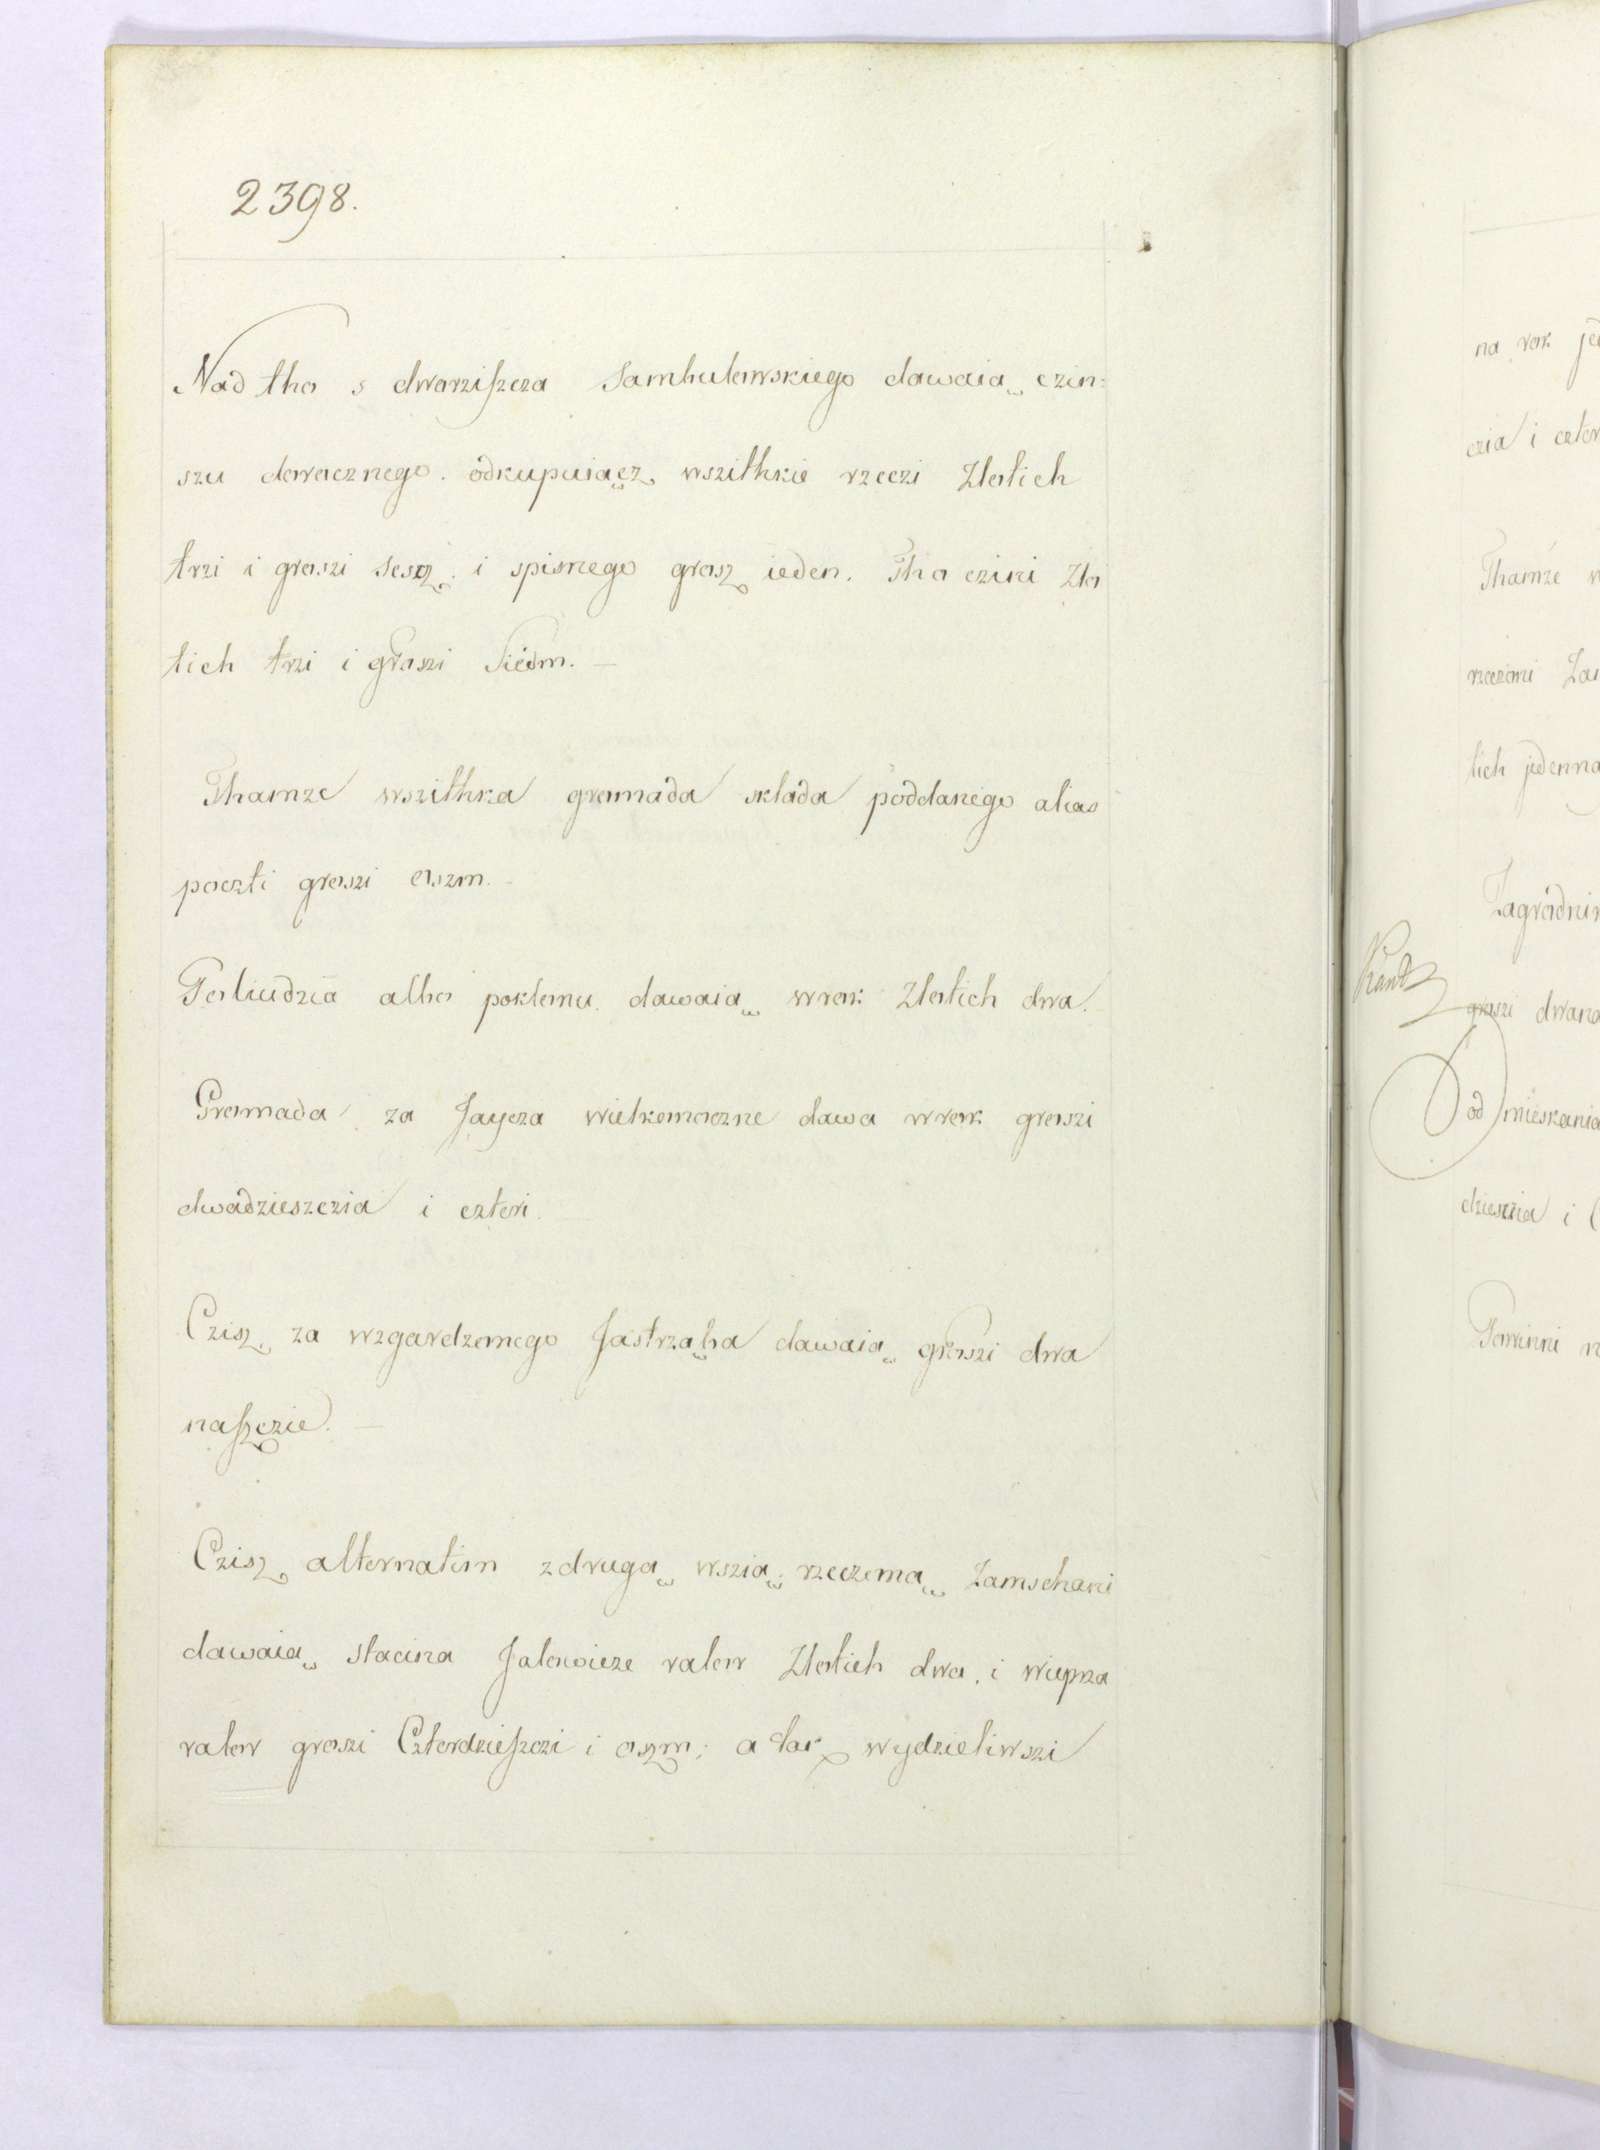 2398.
Nad tho s dworziszcza Sambulowskiego dawaią czin=
szu dorocznego odkupuiącz wszithkie rzeczi Zlotich
trzi i groszi sesz i spisnego grosz ieden. Tho czini Zło
tich trzi i groszi Siedm. —
Thamze wszithka gromada sklada poddanego alias
poczti groszi oszm. —
Poliudzia albo poklonu dawaią wrok Zlotich dwa.
Gromada za Jaycza wielkonoczne dawa wrok groszi
dwadzieszczia i cztori.
Czisz za wzgardzonego Jastrząba dawaią groszi dwa
naszczie. —
Czisz alternatim zdrugą wszią rzeczoną Zamschani
dawaią stacina Jalowicze valor Zlotich dwa, i wieprza
valor groszi Czterdzieszczi i oszm; a tak wydzieliwszi
na rok
czia i
Thamże
rzeczoni
tich
groszi
od mieskania
dziescia i
Powinni